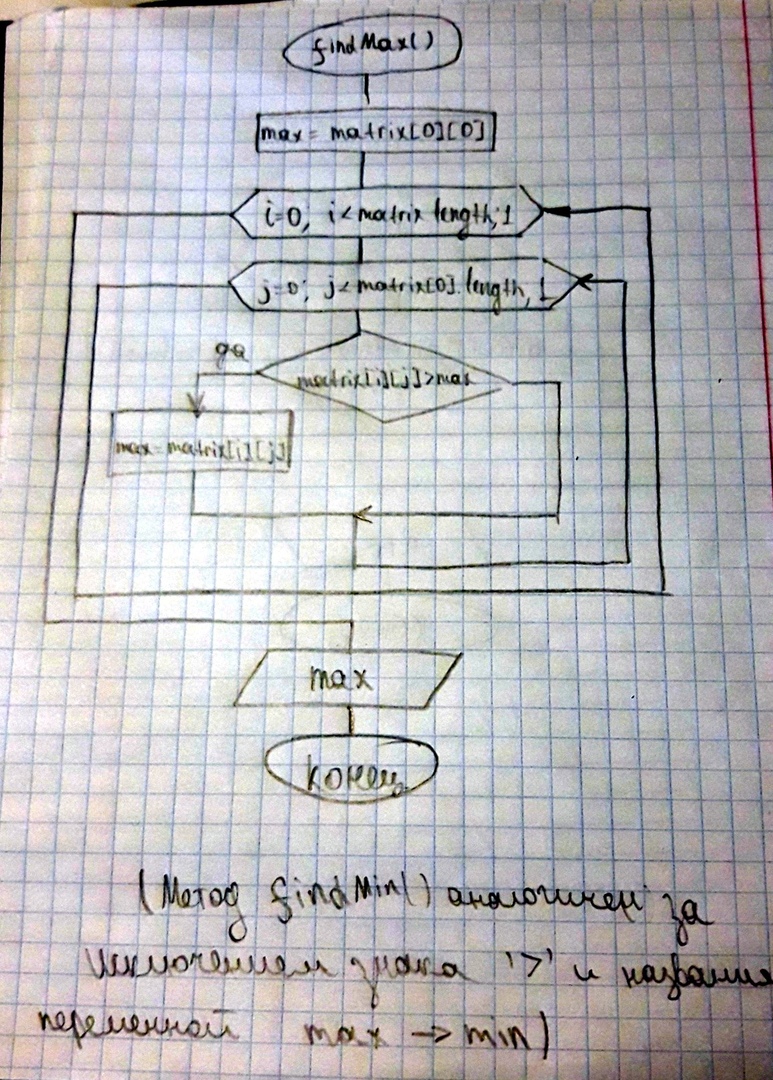 findMax()
max = matrix[0][0]
i=0; i<matrix.length; 1
j=0; j<matrix[0].length, 1
да
matrix[i][j]>max
max=matrix[i][j]
max
конец
(Метод findMin() аналогичен за
исключением знака '>' и названия
переменной max → min)